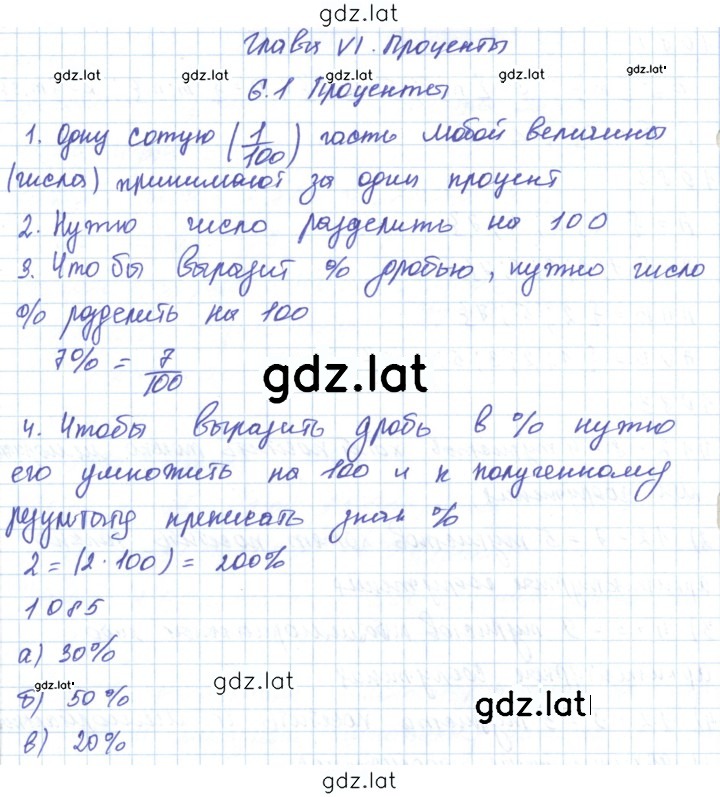 gdz.lat
Глава VI. Проценты
gdz.lat gdz.lat gdz.lat gdz.lat gdz.lat
6.1 Проценты
1. Одну сотую (1/100) часть любой величины
(числа) принимают за один процент
2. Нужно число разделить на 100
3. Что бы выразит % дробью, нужно число
% разделить на 100
7% = 7/100
gdz.lat
4. Чтобы выразить дробь в % нужно
его умножить на 100 и к полученному
результату преписать знак %
2 = (2·100) = 200%
1085
а) 30%
gdz.lat gdz.lat
б) 50%
gdz.lat
в) 20%
gdz.lat